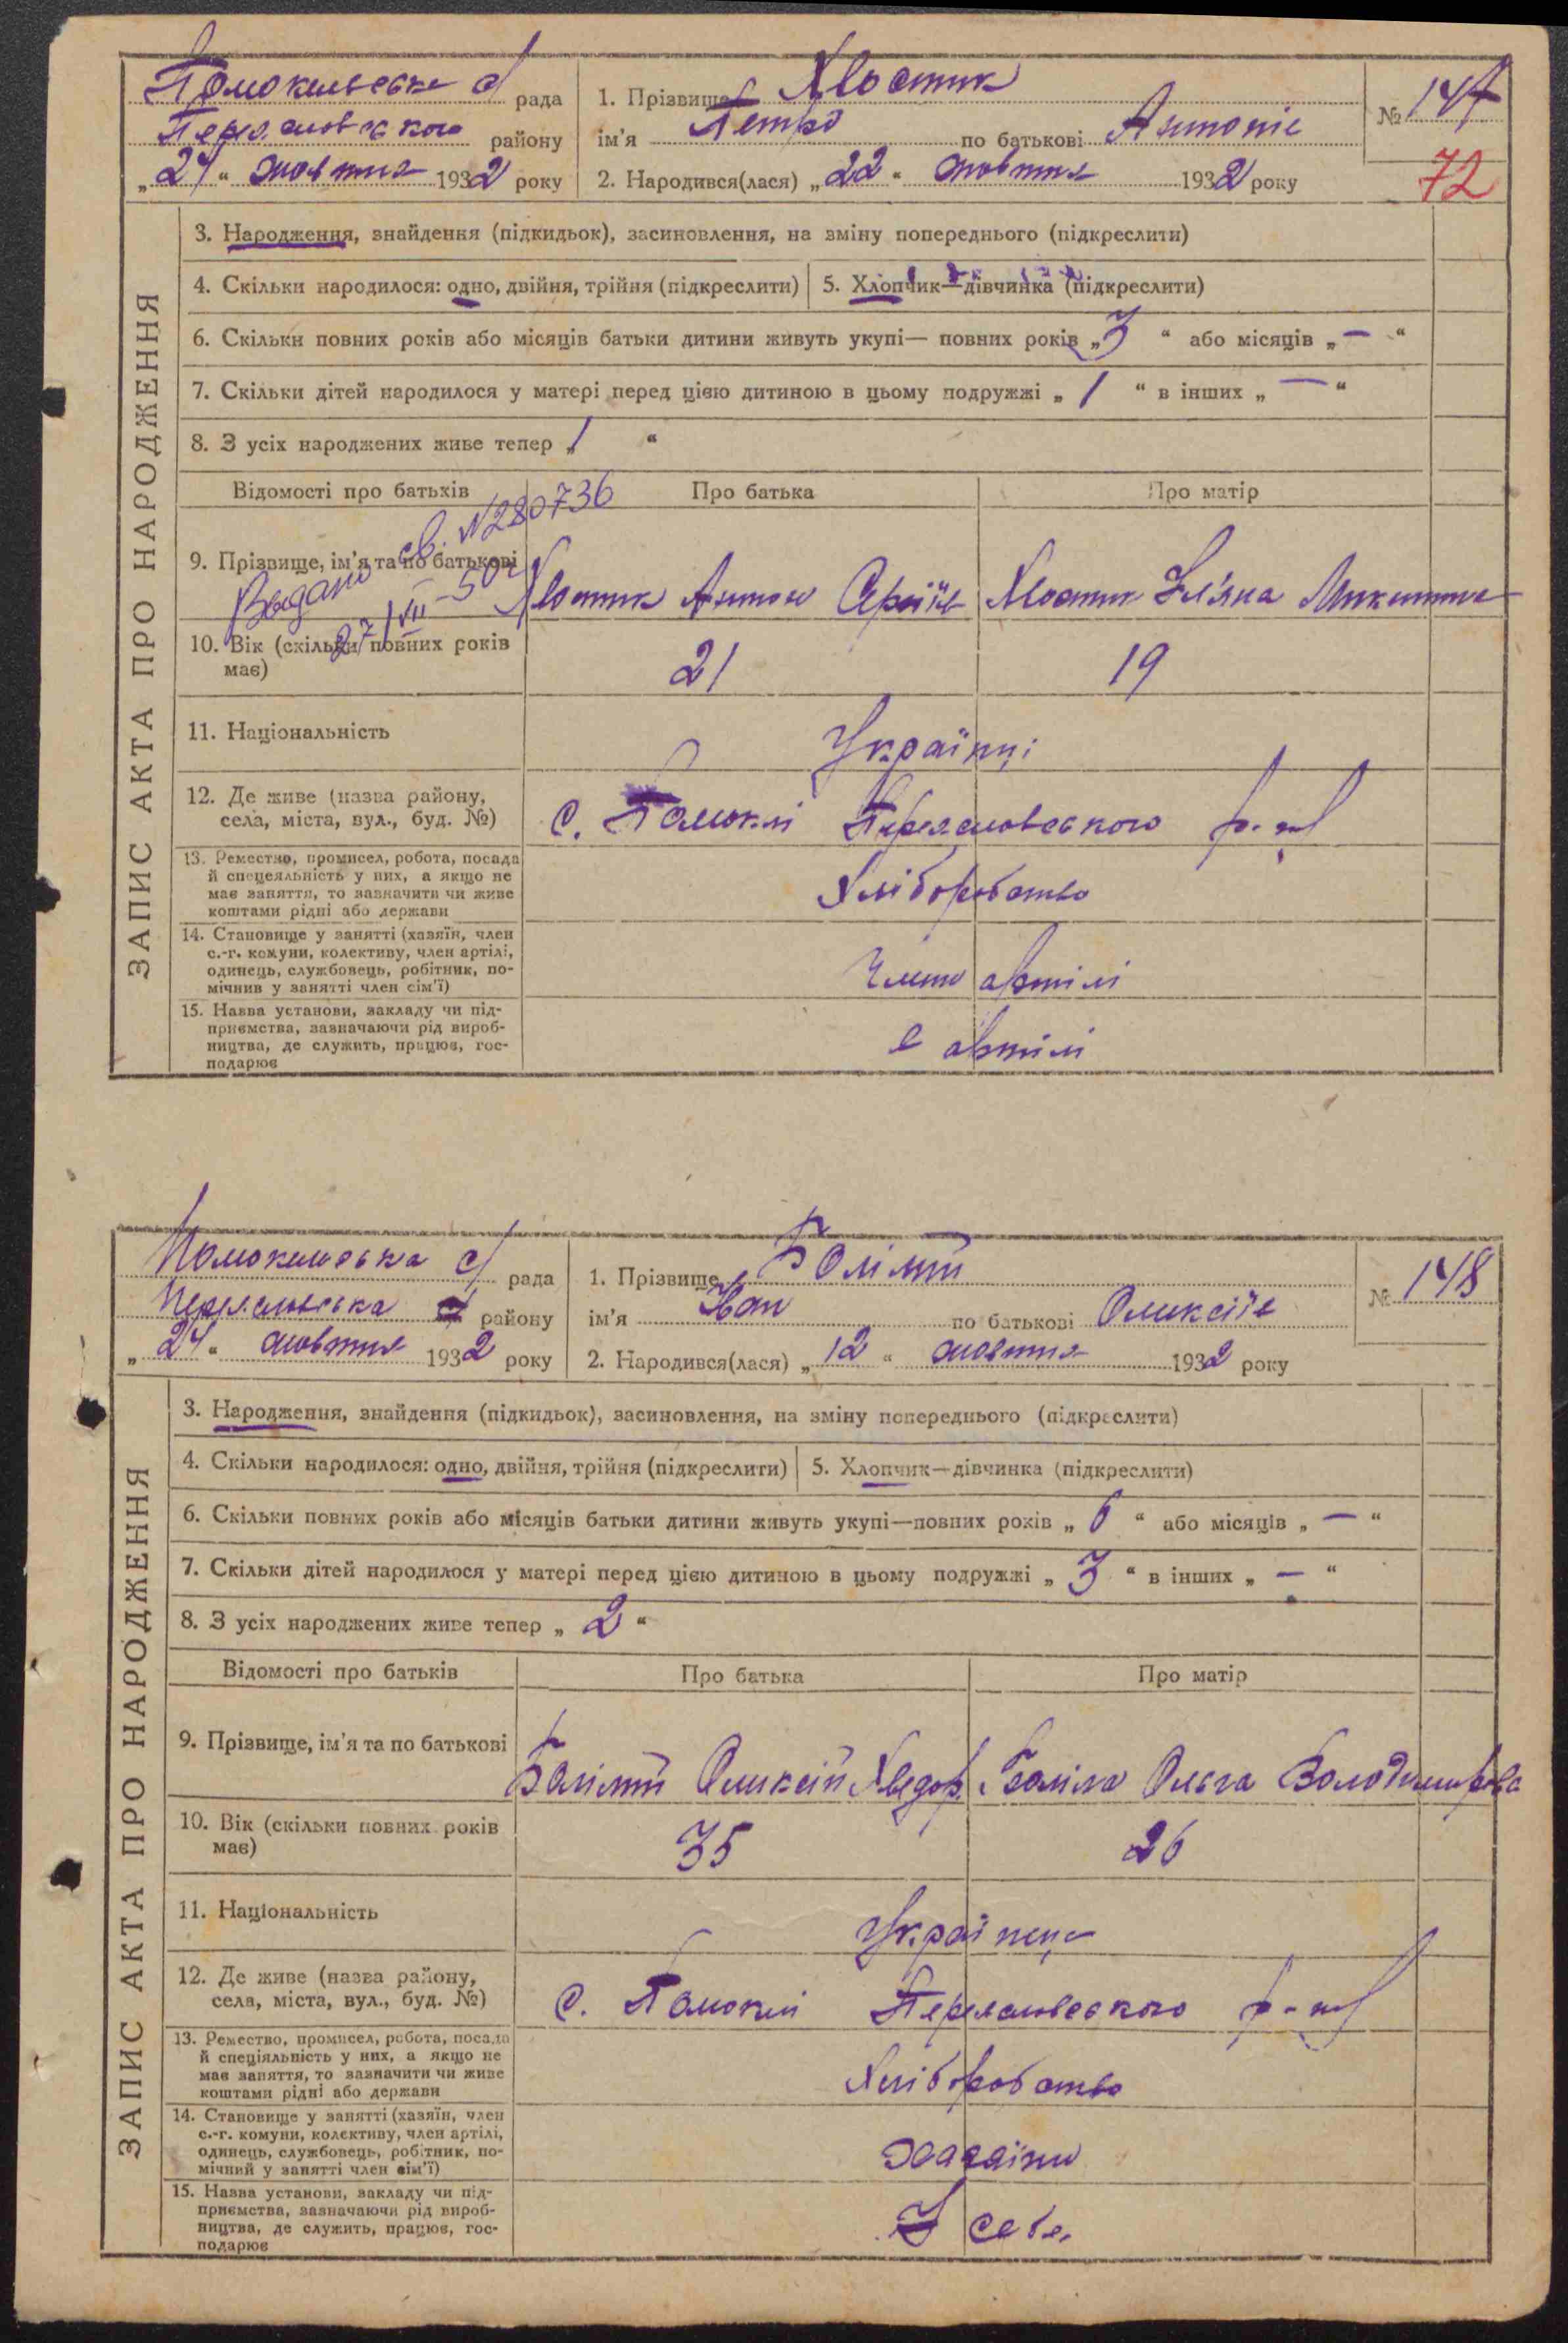 Помокельська с/рада
Переяславського району
„24“ жовтня 1932 року
1. Прізвище Хвостик
ім'я Петро по батькові Антоніє
2. Народився(лася) „22“ жовтня 1932 року
№ 147
72
ЗАПИС АКТА ПРО НАРОДЖЕННЯ
3. Народження, знайдення (підкидьок), засиновлення, на зміну попереднього (підкреслити)
4. Скільки народилося: одно, двійня, трійня (підкреслити)
5. Хлопчик—дівчинка (підкреслити)
6. Скільки повних років або місяців батьки дитини живуть укупі— повних років „3“ або місяців „—“
7. Скільки дітей народилося у матері перед цією дитиною в цьому подружжі „1“ в інших „—“
8. З усіх народжених живе тепер „1“
Відомості про батьків
Про батька
Про матір
Видано св. N280736
27/VII-50г
9. Прізвище, ім'я та по батькові
Хвостик Антон Сергіїв
Хвостик Уляна Микитина
10. Вік (скільки повних років
має)
21
19
11. Національність
Українці
12. Де живе (назва району,
села, міста, вул., буд. №)
с. Помоклі Переяславського р-ну
13. Ремество, промисел, робота, посада
й спецеяльність у них, а якщо не
має заняття, то зазначити чи живе
коштами рідні або держави
Хліборобство
14. Становище у занятті (хазяїн, член
с.-г. комуни, колективу, член артілі,
одинець, службовець, робітник, по-
мічнив у занятті член сім'ї)
Член артілі
15. Назва установи, закладу чи під-
приємства, зазначаючи рід вироб-
ництва, де служить, працює, гос-
подарює
в артілі
Помокельська с/рада
Переяславська району
„24“ жовтня 1932 року
1. Прізвище Болілий
ім'я Іван по батькові Олексіїв
2. Народився(лася) „12“ жовтня 1932 року
№ 148
ЗАПИС АКТА ПРО НАРОДЖЕННЯ
3. Народження, знайдення (підкидьок), засиновлення, на зміну попереднього (підкреслити)
4. Скільки народилося: одно, двійня, трійня (підкреслити)
5. Хлопчик—дівчинка (підкреслити)
6. Скільки повних років або місяців батьки дитини живуть укупі—повних років „6“ або місяців „—“
7. Скільки дітей народилося у матері перед цією дитиною в цьому подружжі „3“ в інших „—“
8. З усіх народжених живе тепер „2“
Відомості про батьків
Про батька
Про матір
9. Прізвище, ім'я та по батькові
Болілий Олексій Хведор.
Боліла Ольга Володимирова
10. Вік (скільки повних років
має)
35
26
11. Національність
Українец
12. Де живе (назва району,
села, міста, вул., буд. №)
с. Помоклі Переяславського р-ну
13. Ремество, промисел, робота, посада
й спеціяльність у них, а якщо не
має заняття, то зазначити чи живе
коштами рідні або держави
Хліборобство
14. Становище у занятті (хазяїн, член
с.-г. комуни, колективу, член артілі,
одинець, службовець, робітник, по-
мічний у занятті член сім'ї)
Хазаїни
15. Назва установи, закладу чи під-
приємства, зазначаючи рід вироб-
ництва, де служить, працює, гос-
подарює
У себе